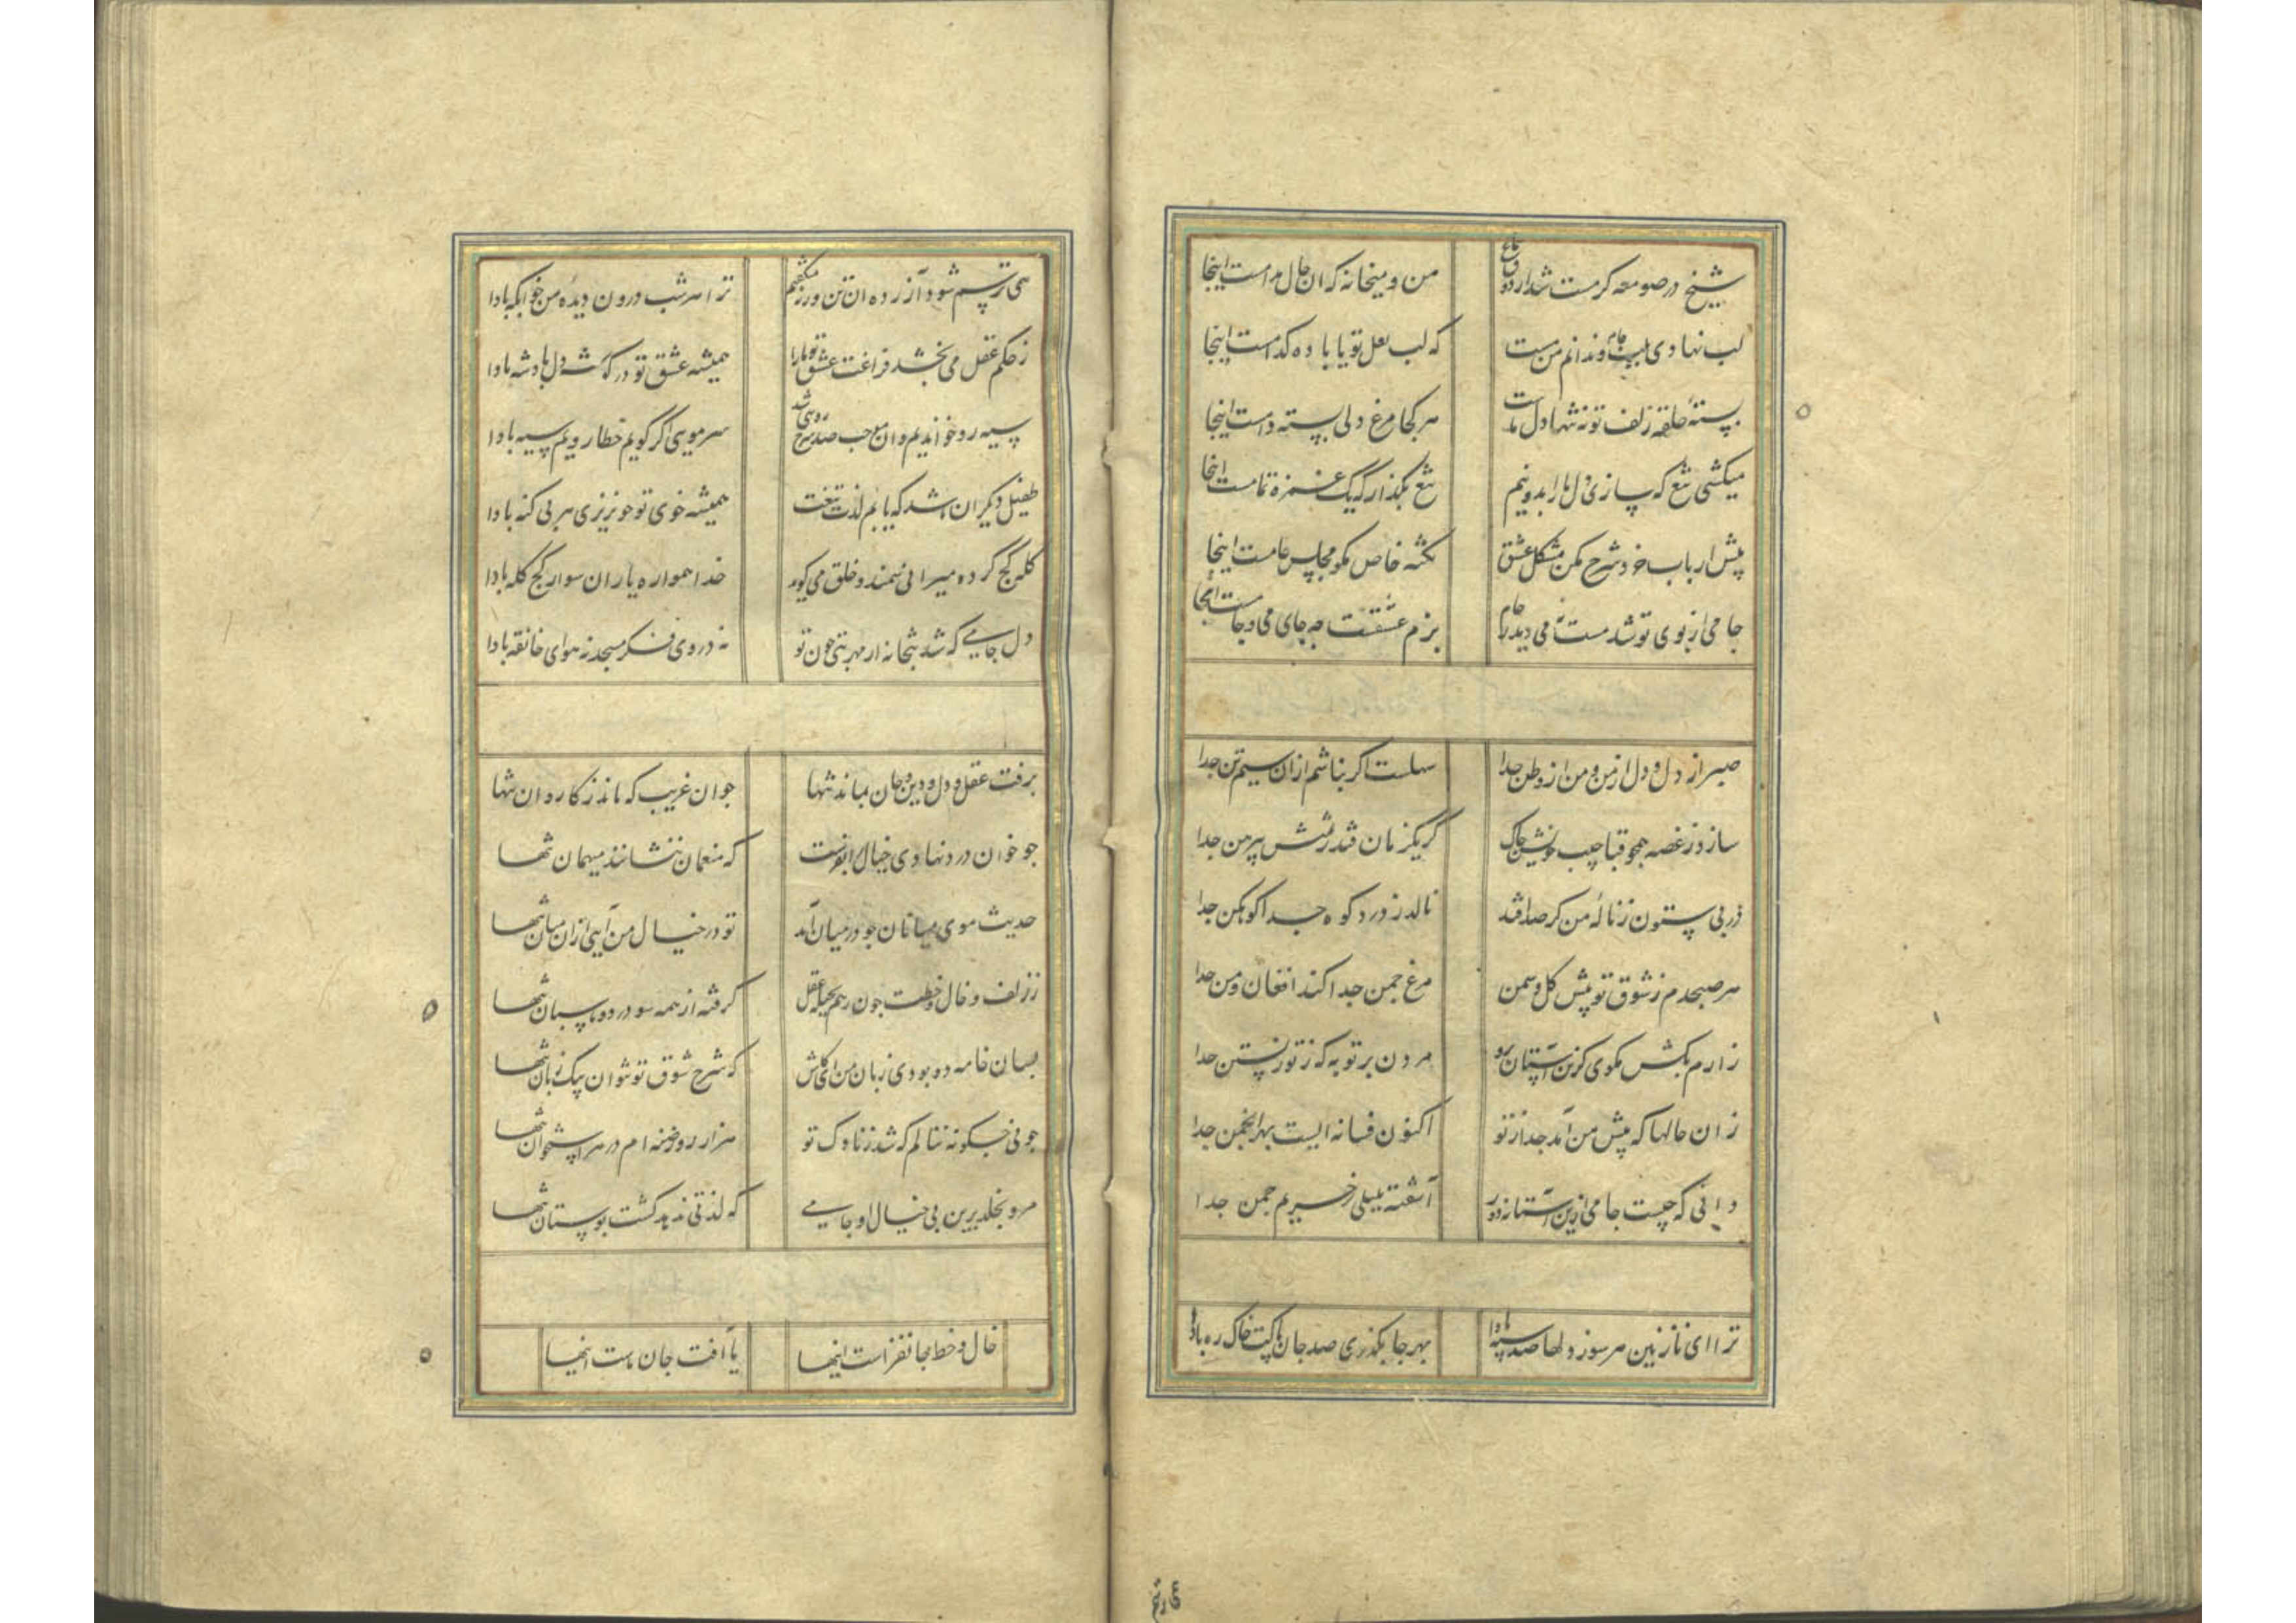 شیخ در صومعه گر مست شد از ذوق سماع من و میخانه که آن حال مدامست اینجا
لب نهادی بلب جام و ندانم من مست که لب لعل تو یا باده کدامست اینجا
بستهٔ حلقهٔ زلف تو نه تنها دل ماست هر کجا مرغ دلی بسته دامست اینجا
میکشی تیغ که سازی دل ما را بدو نیم تیغ بگذار که یک غمزه تمامست اینجا
پیش ارباب خرد شرح مکن مشکل عشق نکته خاص مگو مجلس عامست اینجا
جامی از بوی تو شد مست نه می دید نه جام بزم عشقست چه جای می و جامست اینجا
صبر از دل و دل از من و من از وطن جدا سهلست اگر نباشم از آن سیمتن جدا
سازد ز غصه همچو قبا جیب خویش چاک گر یکزمان فتد ز تنش پیرهن جدا
در بی ستون ز نالهٔ من گر صدا فتد نالد ز درد کوه جدا کوهکن جدا
هر صبحدم ز شوق تو پیش گل و سمن مرغ چمن جدا کند افغان و من جدا
زارم بکش مگوی کزین آستان برو مردن بر تو به که ز تو زیستن جدا
زان حالها که پیش من آمد جدا از تو اکنون فسانه ایست بهر انجمن جدا
دانی که چیست جامی ازین آستانه دور آشفته بلبلی ز حریم چمن جدا
ترا ای نازنین هر سو ز دلها صد سپه بادا بهر جا بگذری صد جان پاکت خاک ره بادا
همی ترسم
همی ترسم شود آزرده آن تن ورنه میگفتم ترا هر شب درون دیدهٔ من خوابگه بادا
ز حکم عقل می بخشد فراغت عشق تو ما را همیشه عشق تو در کشور دل پادشه بادا
سیه رو خواندیم وان موجب صد سرخ رویی شد سر مویی اگر گویم خطا رویم سیه بادا
طفیل دیگران باشد که یابم لذت تیغت همیشه خوی تو خونریزی هر بی گنه بادا
کله کج کرده میرانی سمند و خلق می گوید خدا همواره یار آن سوار کج کله بادا
دل جامی که شد بتخانه از مهر بتی چون تو نه در وی فکر مسجد نه هوای خانقه بادا
برفت عقل و دل و دین و جان بماند تنها چو آن غریب که ماند ز کاروان تنها
چو خوان درد نهادی خیال را بفرست که منعمان ننشانند میهمان تنها
حدیث موی میانان چو در میان آمد تو در خیال من آیی از آن میان تنها
ز زلف و خال و خطت چون رهم بحیله عقل گرفته از همه سو دزد و پاسبان تنها
بسان خامه دو بودی زبان من ای کاش که شرح شوق تو نتوان بیک زبان تنها
چو نی چگونه ننالم که شد ز ناوک تو هزار روزنه ام در هر استخوان تنها
مرو بخلد برین بی خیال او جامی که لذتی ندهد گشت بوستان تنها
خال و خط جانفزاست اینها یا آفت جان ماست اینها